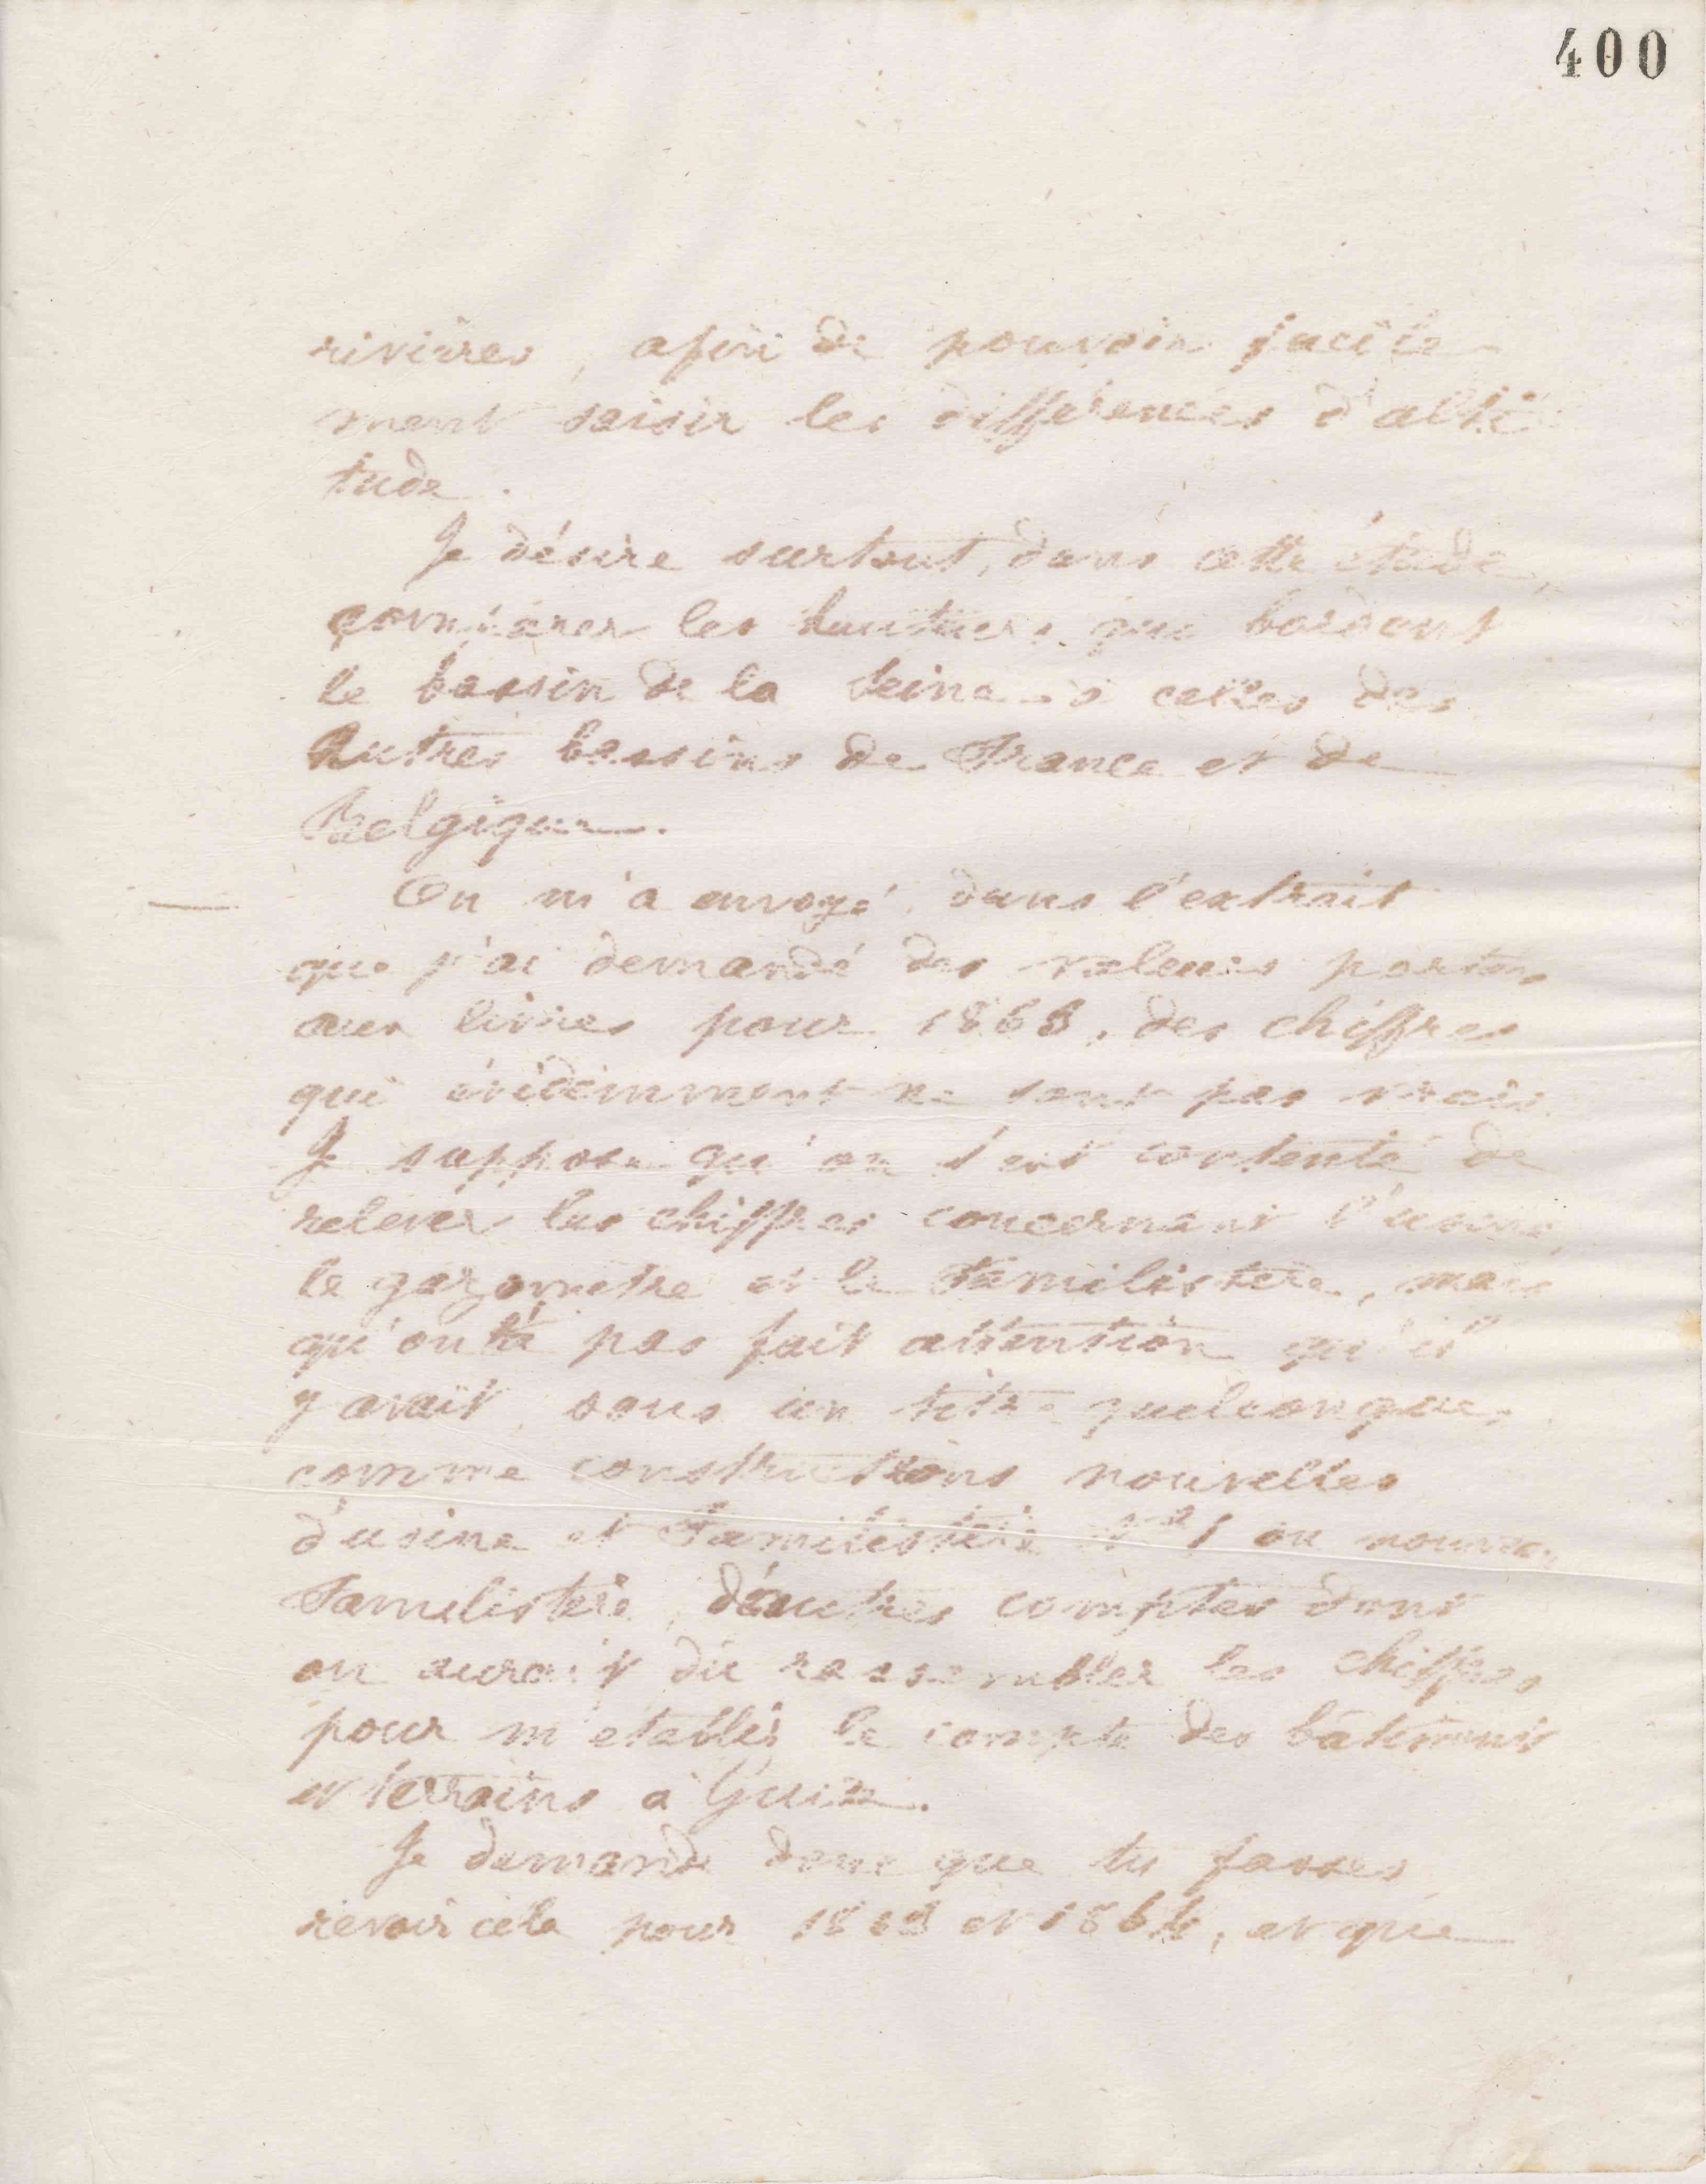 400
rivières, afin de pouvoir facile
ment saisir les différences d'alti
tude.
Je désire surtout, dans cette étude,
comparer les hauteurs qui bordent
le bassin de la Seine à celles des
autres bassins de France et de
Belgique.
On m'a envoyé dans l'extrait
que j'ai demandé des valeurs portées
aux livres pour 1863, des chiffres
qui évidemment ne sont pas vrais.
Je suppose qu'on s'est contenté de
relever les chiffres concernant l'usine,
le gazomètre et le Familistère, mais
qu'on n'a pas fait attention qu'il
y avait, sous un titre quelconque,
comme constructions nouvelles
d'usine et Familistère 1 ou nouveau
Familistère, d'autres comptes dont
on aurait dû rassembler les chiffres
pour m'établir le compte des bâtiments
et terrains à Guise.
Je demande donc que tu fasses
revoir cela pour 1863 et 1864, et que